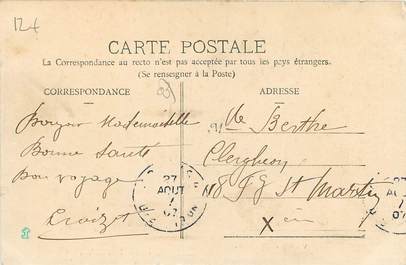 12f
CARTE POSTALE
La Correspondance au recto n'est pas acceptée par tous les pays étrangers.
(Se renseigner à la Poste)
CORRESPONDANCE
ADRESSE
Bonjour Mademoiselle
Bonne Santé
Bon voyage
Croizet
Mlle Berthe
St Martin
X
27
AOUT
07
27
AOUT
07